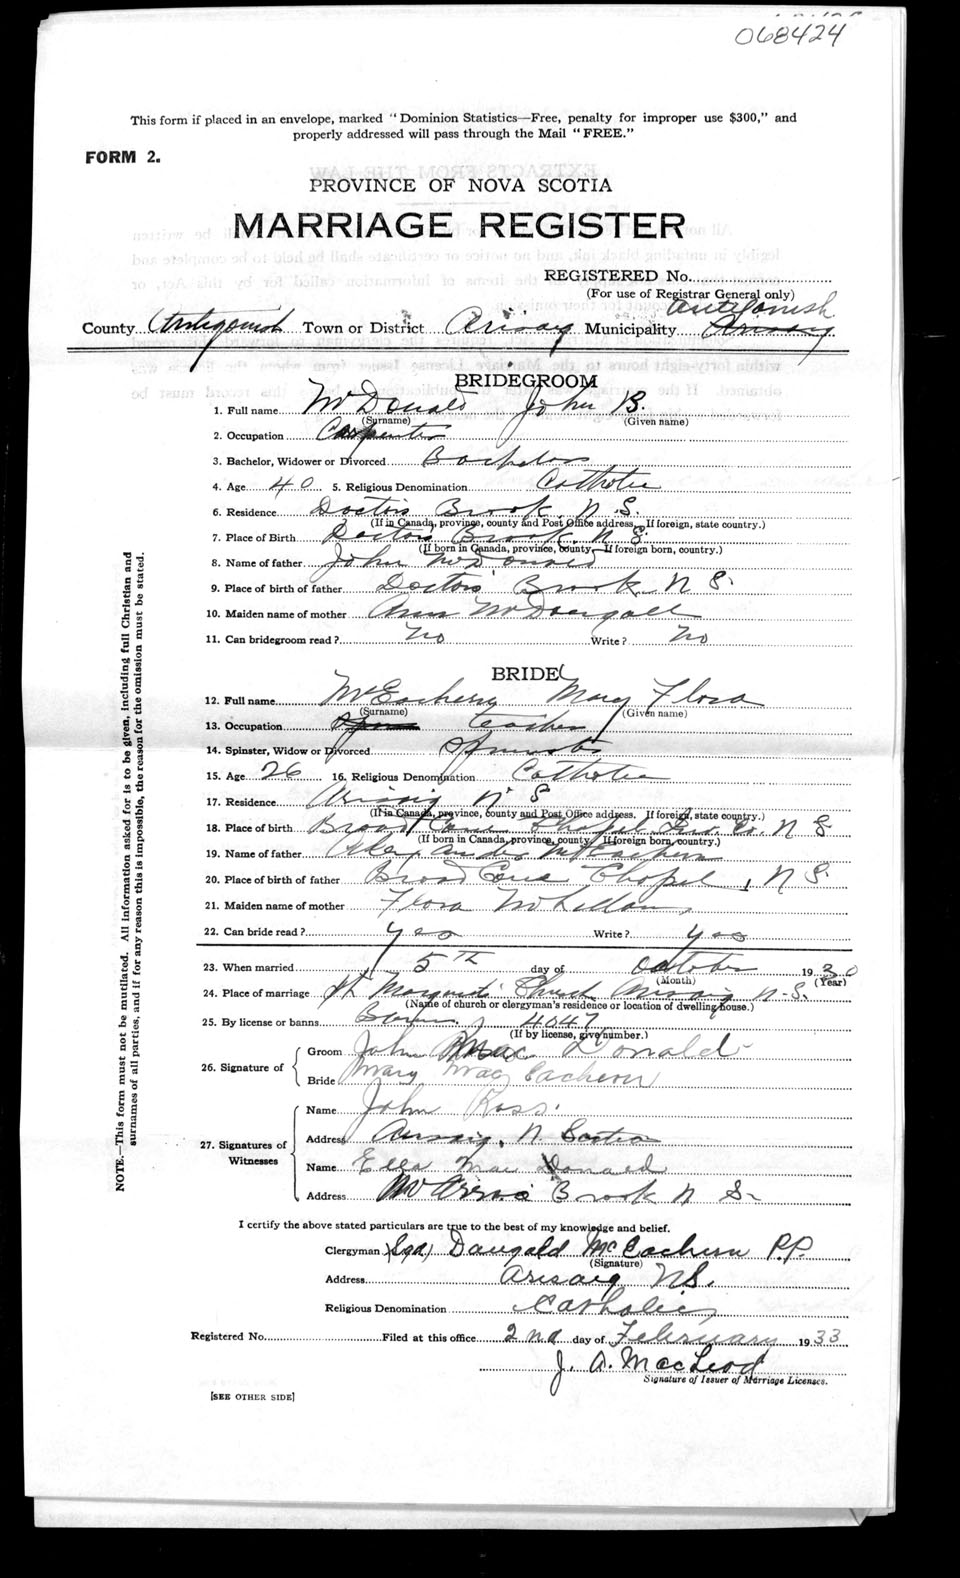 068424
This form if placed in an envelope, marked "Dominion Statistics—Free, penalty for improper use $300," and
properly addressed will pass through the Mail "FREE."
FORM 2.
PROVINCE OF NOVA SCOTIA
MARRIAGE REGISTER
REGISTERED No.
(For use of Registrar General only)
Antigonish
County Antigonish Town or District Arisaig Municipality Arisaig
BRIDEGROOM
1. Full name McDonald John B.
(Surname) (Given name)
2. Occupation Carpenter
3. Bachelor, Widower or Divorced Bachelor
4. Age 40 5. Religious Denomination Catholic
6. Residence Doctors Brook, N.S.
(If in Canada, province, county and Post Office address. If foreign, state country.)
7. Place of Birth Doctors Brook, N S.
(If born in Canada, province, county. If foreign born, country.)
8. Name of father John McDonald
9. Place of birth of father Doctors Brook, N S.
10. Maiden name of mother Ann McDougall
11. Can bridegroom read? No Write? No
BRIDE
12. Full name McEachern Mary Flora
(Surname) (Given name)
13. Occupation Teacher
14. Spinster, Widow or Divorced Spinster
15. Age 26 16. Religious Denomination Catholic
17. Residence Arisaig N S
(If in Canada, province, county and Post Office address. If foreign, state country.)
18. Place of birth Broad Cove Chapel Inv. Co. N S
(If born in Canada, province, county. If foreign born, country.)
19. Name of father Alexander McEachern
20. Place of birth of father Broad Cove Chapel, N S.
21. Maiden name of mother Flora McLellan
22. Can bride read? yes Write? yes
23. When married 5th day of October 1930
(Month) (Year)
24. Place of marriage St Margarets Church Arisaig N.S.
(Name of church or clergyman's residence or location of dwelling house.)
25. By license or banns Banns 4047
(If by license, give number.)
26. Signature of
Groom John Mac Donald
Bride Mary Mac Eachern
27. Signatures of Witnesses
Name John Ross.
Address Arisaig, N. Scotia
Name Ella Mac Donald
Address Brook N S.
I certify the above stated particulars are true to the best of my knowledge and belief.
Clergyman (Sgd) Dougald McEachern P.P.
(Signature)
Address Arisaig N.S.
Religious Denomination Catholic
Registered No. Filed at this office 2nd day of February 1933
J. A. MacLeod
Signature of Issuer of Marriage Licenses.
[SEE OTHER SIDE]
NOTE.—This form must not be mutilated. All information asked for is to be given, including full Christian and
surnames of all parties, and if for any reason this is impossible, the reason for the omission must be stated.